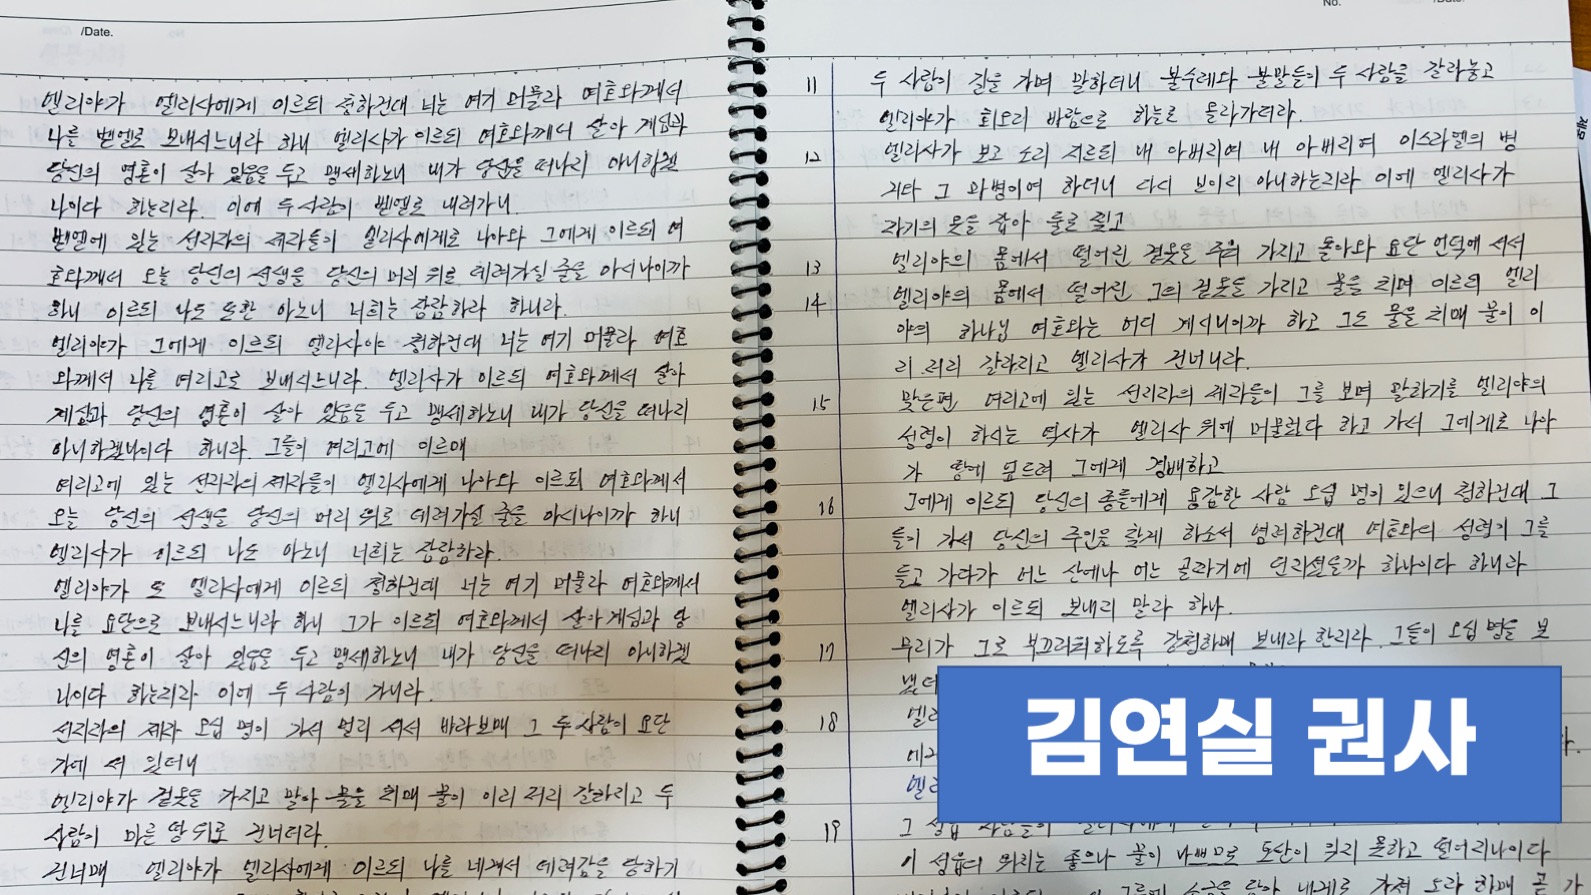 /Date.
엘리야가 엘리사에게 이르되 청하건대 너는 여기 머물라 여호와께서
나를 벧엘로 보내시느니라 하니 엘리사가 이르되 여호와께서 살아 계심과
당신의 영혼이 살아 있음을 두고 맹세하노니 내가 당신을 떠나지 아니하겠
나이다 하는지라 이에 두 사람이 벧엘로 내려가니
벧엘에 있는 선지자의 제자들이 엘리사에게로 나아와 그에게 이르되 여
호와께서 오늘 당신의 선생을 당신의 머리 위로 데려가실 줄을 아시나이까
하니 이르되 나도 또한 아노니 너희는 잠잠하라 하니라.
엘리야가 그에게 이르되 엘리사야 청하건대 너는 여기 머물라 여호
와께서 나를 여리고로 보내시느니라. 엘리사가 이르되 여호와께서 살아
계심과 당신의 영혼이 살아 있음을 두고 맹세하노니 내가 당신을 떠나지
아니하겠나이다 하니라 그들이 여리고에 이르매
여리고에 있는 선지자의 제자들이 엘리사에게 나아와 이르되 여호와께서
오늘 당신의 선생을 당신의 머리 위로 데려가실 줄을 아시나이까 하니
엘리사가 이르되 나도 아노니 너희는 잠잠하라.
엘리야가 또 엘리사에게 이르되 청하건대 너는 여기 머물라 여호와께서
나를 요단으로 보내시느니라 하니 그가 이르되 여호와께서 살아 계심과 당
신의 영혼이 살아 있음을 두고 맹세하노니 내가 당신을 떠나지 아니하겠
나이다 하는지라 이에 두 사람이 가니라.
선지자의 제자 오십 명이 가서 멀리 서서 바라보매 그 두 사람이 요단
가에 서 있더니
엘리야가 겉옷을 가지고 말아 물을 치매 물이 이리 저리 갈라지고 두
사람이 마른 땅 위로 건너더라.
건너매 엘리야가 엘리사에게 이르되 나를 네게서 데려감을 당하기
No. /Date.
11 두 사람이 길을 가며 말하더니 불수레와 불말들이 두 사람을 갈라놓고
엘리야가 회오리 바람으로 하늘로 올라가더라.
12 엘리사가 보고 소리 지르되 내 아버지여 내 아버지여 이스라엘의 병
거와 그 마병이여 하더니 다시 보이지 아니하는지라 이에 엘리사가
자기의 옷을 잡아 둘로 찢고
13 엘리야의 몸에서 떨어진 겉옷을 주워 가지고 돌아와 요단 언덕에 서서
14 엘리야의 몸에서 떨어진 그의 겉옷을 가지고 물을 치며 이르되 엘리
야의 하나님 여호와는 어디 계시니이까 하고 그도 물을 치매 물이 이
리 저리 갈라지고 엘리사가 건너니라.
15 맞은편 여리고에 있는 선지자의 제자들이 그를 보며 말하기를 엘리야의
성령이 하시는 역사가 엘리사 위에 머물렀다 하고 가서 그에게로 나아
가 땅에 엎드려 그에게 경배하고
16 그에게 이르되 당신의 종들에게 용감한 사람 오십 명이 있으니 청하건대 그
들이 가서 당신의 주인을 찾게 하소서 염려하건대 여호와의 성령이 그를
들고 가다가 어느 산에나 어느 골짜기에 던지셨을까 하나이다 하니라
엘리사가 이르되 보내지 말라 하나.
17 무리가 그로 부끄러워하도록 강청하매 보내라 한지라. 그들이 오십 명을 보
18
19
이 성읍의 위치는 좋으나 물이 나쁘므로 토산이 익지 못하고 떨어지나이다
김연실 권사